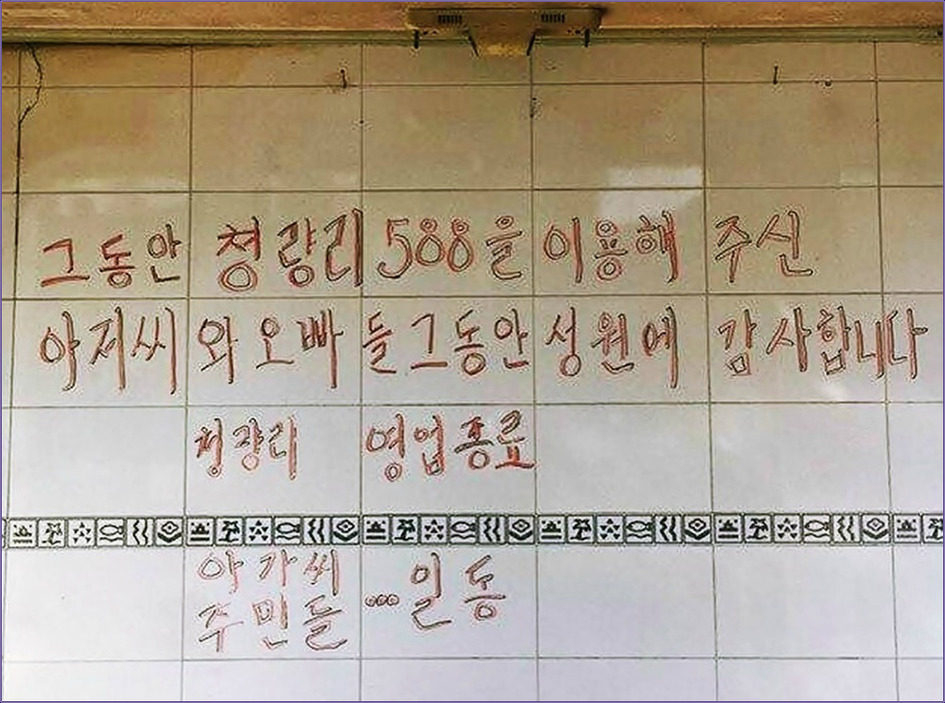 그동안 청량리 588을 이용해 주신
아저씨와 오빠들 그동안 성원에 감사합니다
청량리 영업종료
아가씨
주민들 ... 일동